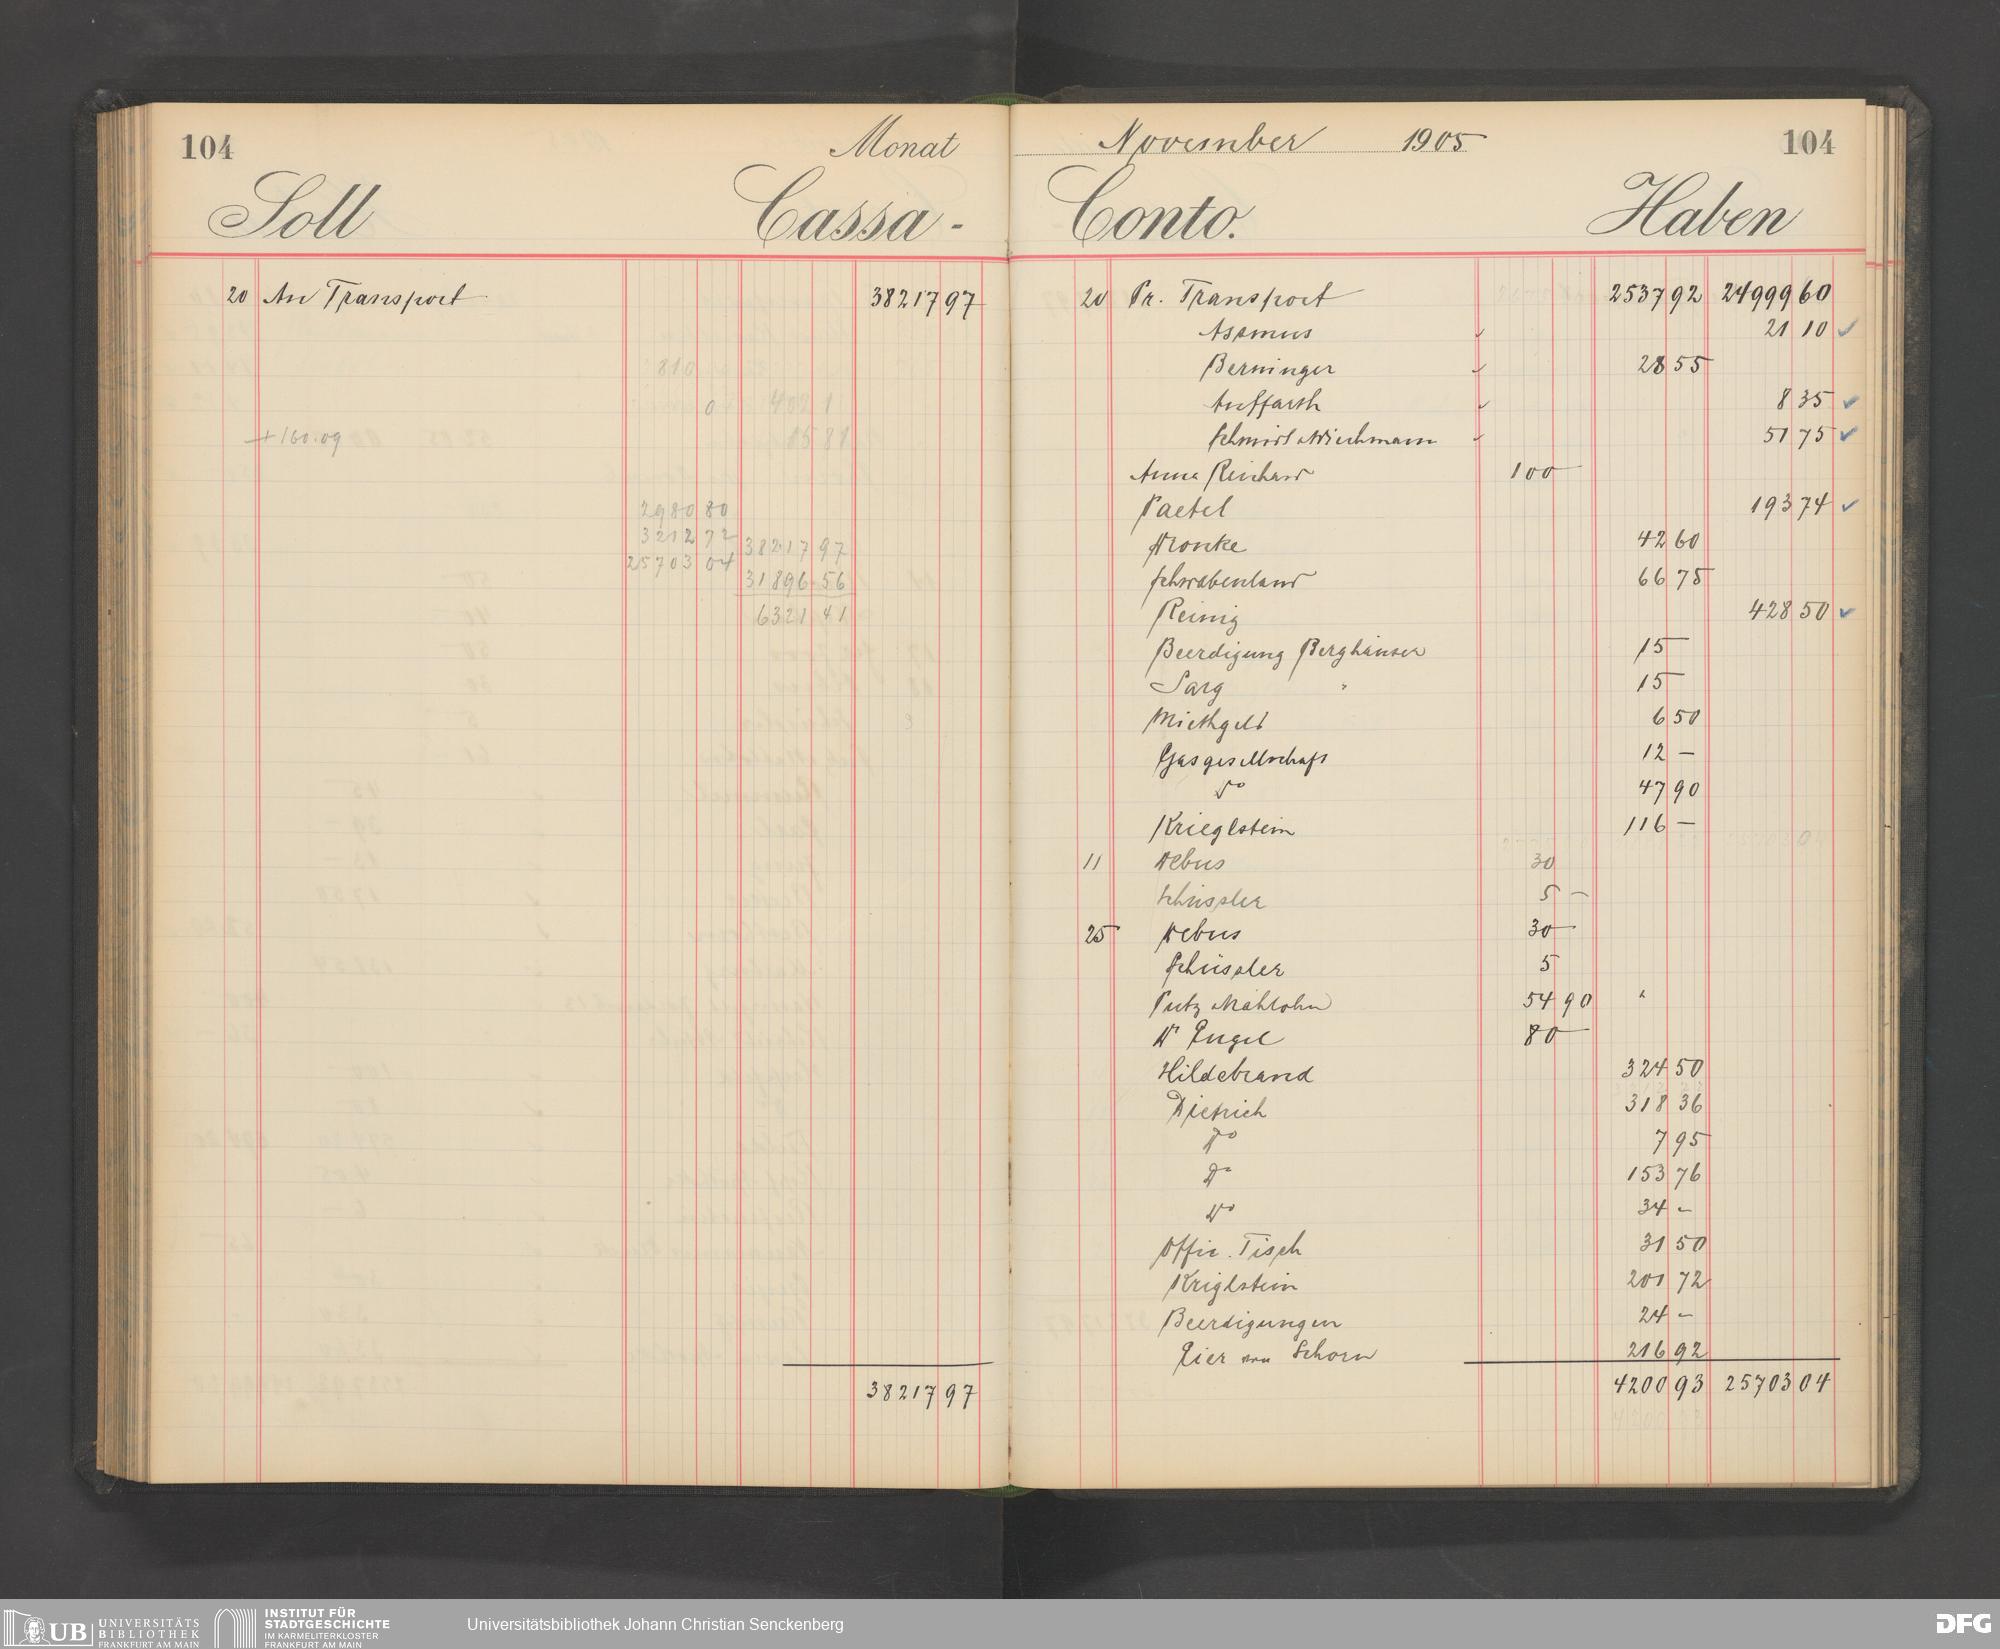 104 Monat
Soll Cassa-
20 An Transport 38217 97
810
0 402 1
+160.09 1581
2980 80
3212 72 38217 97
25703 04 31896 56
6321 41
38217 97
November 1905 104
Conto. Haben
20 Pr. Transport 2537 92 24999 60
Assmus 21 10
Berninger 28 55
Auffarth 8 35
Schmidt & Wiechmann 51 75
Anna Reichard 100
Paetel 193 74
Droncke 42 60
Schwabenland 66 75
Reinig 428 50
Beerdigung Berghäuser 15
Sarg " 15
Miethgeld 6 50
Gasgesellschaft 12 —
do 47 90
Krieglstein 116 —
11 Debus 30
Schüssler 5 —
25 Debus 30
Schüssler 5
Putz & Nählohn 54 90
Dr Engel 80
Hildebrand 324 50
Dietrich 318 36
Do 7 95
Do 153 76
Do 34 —
Offic. Tisch 31 50
Kriglstein 201 72
Beerdigungen 24 —
Eier von Schorn 216 92
4200 93 25703 04
UB UNIVERSITÄTS BIBLIOTHEK FRANKFURT AM MAIN
INSTITUT FÜR STADTGESCHICHTE IM KARMELITERKLOSTER FRANKFURT AM MAIN
Universitätsbibliothek Johann Christian Senckenberg
DFG